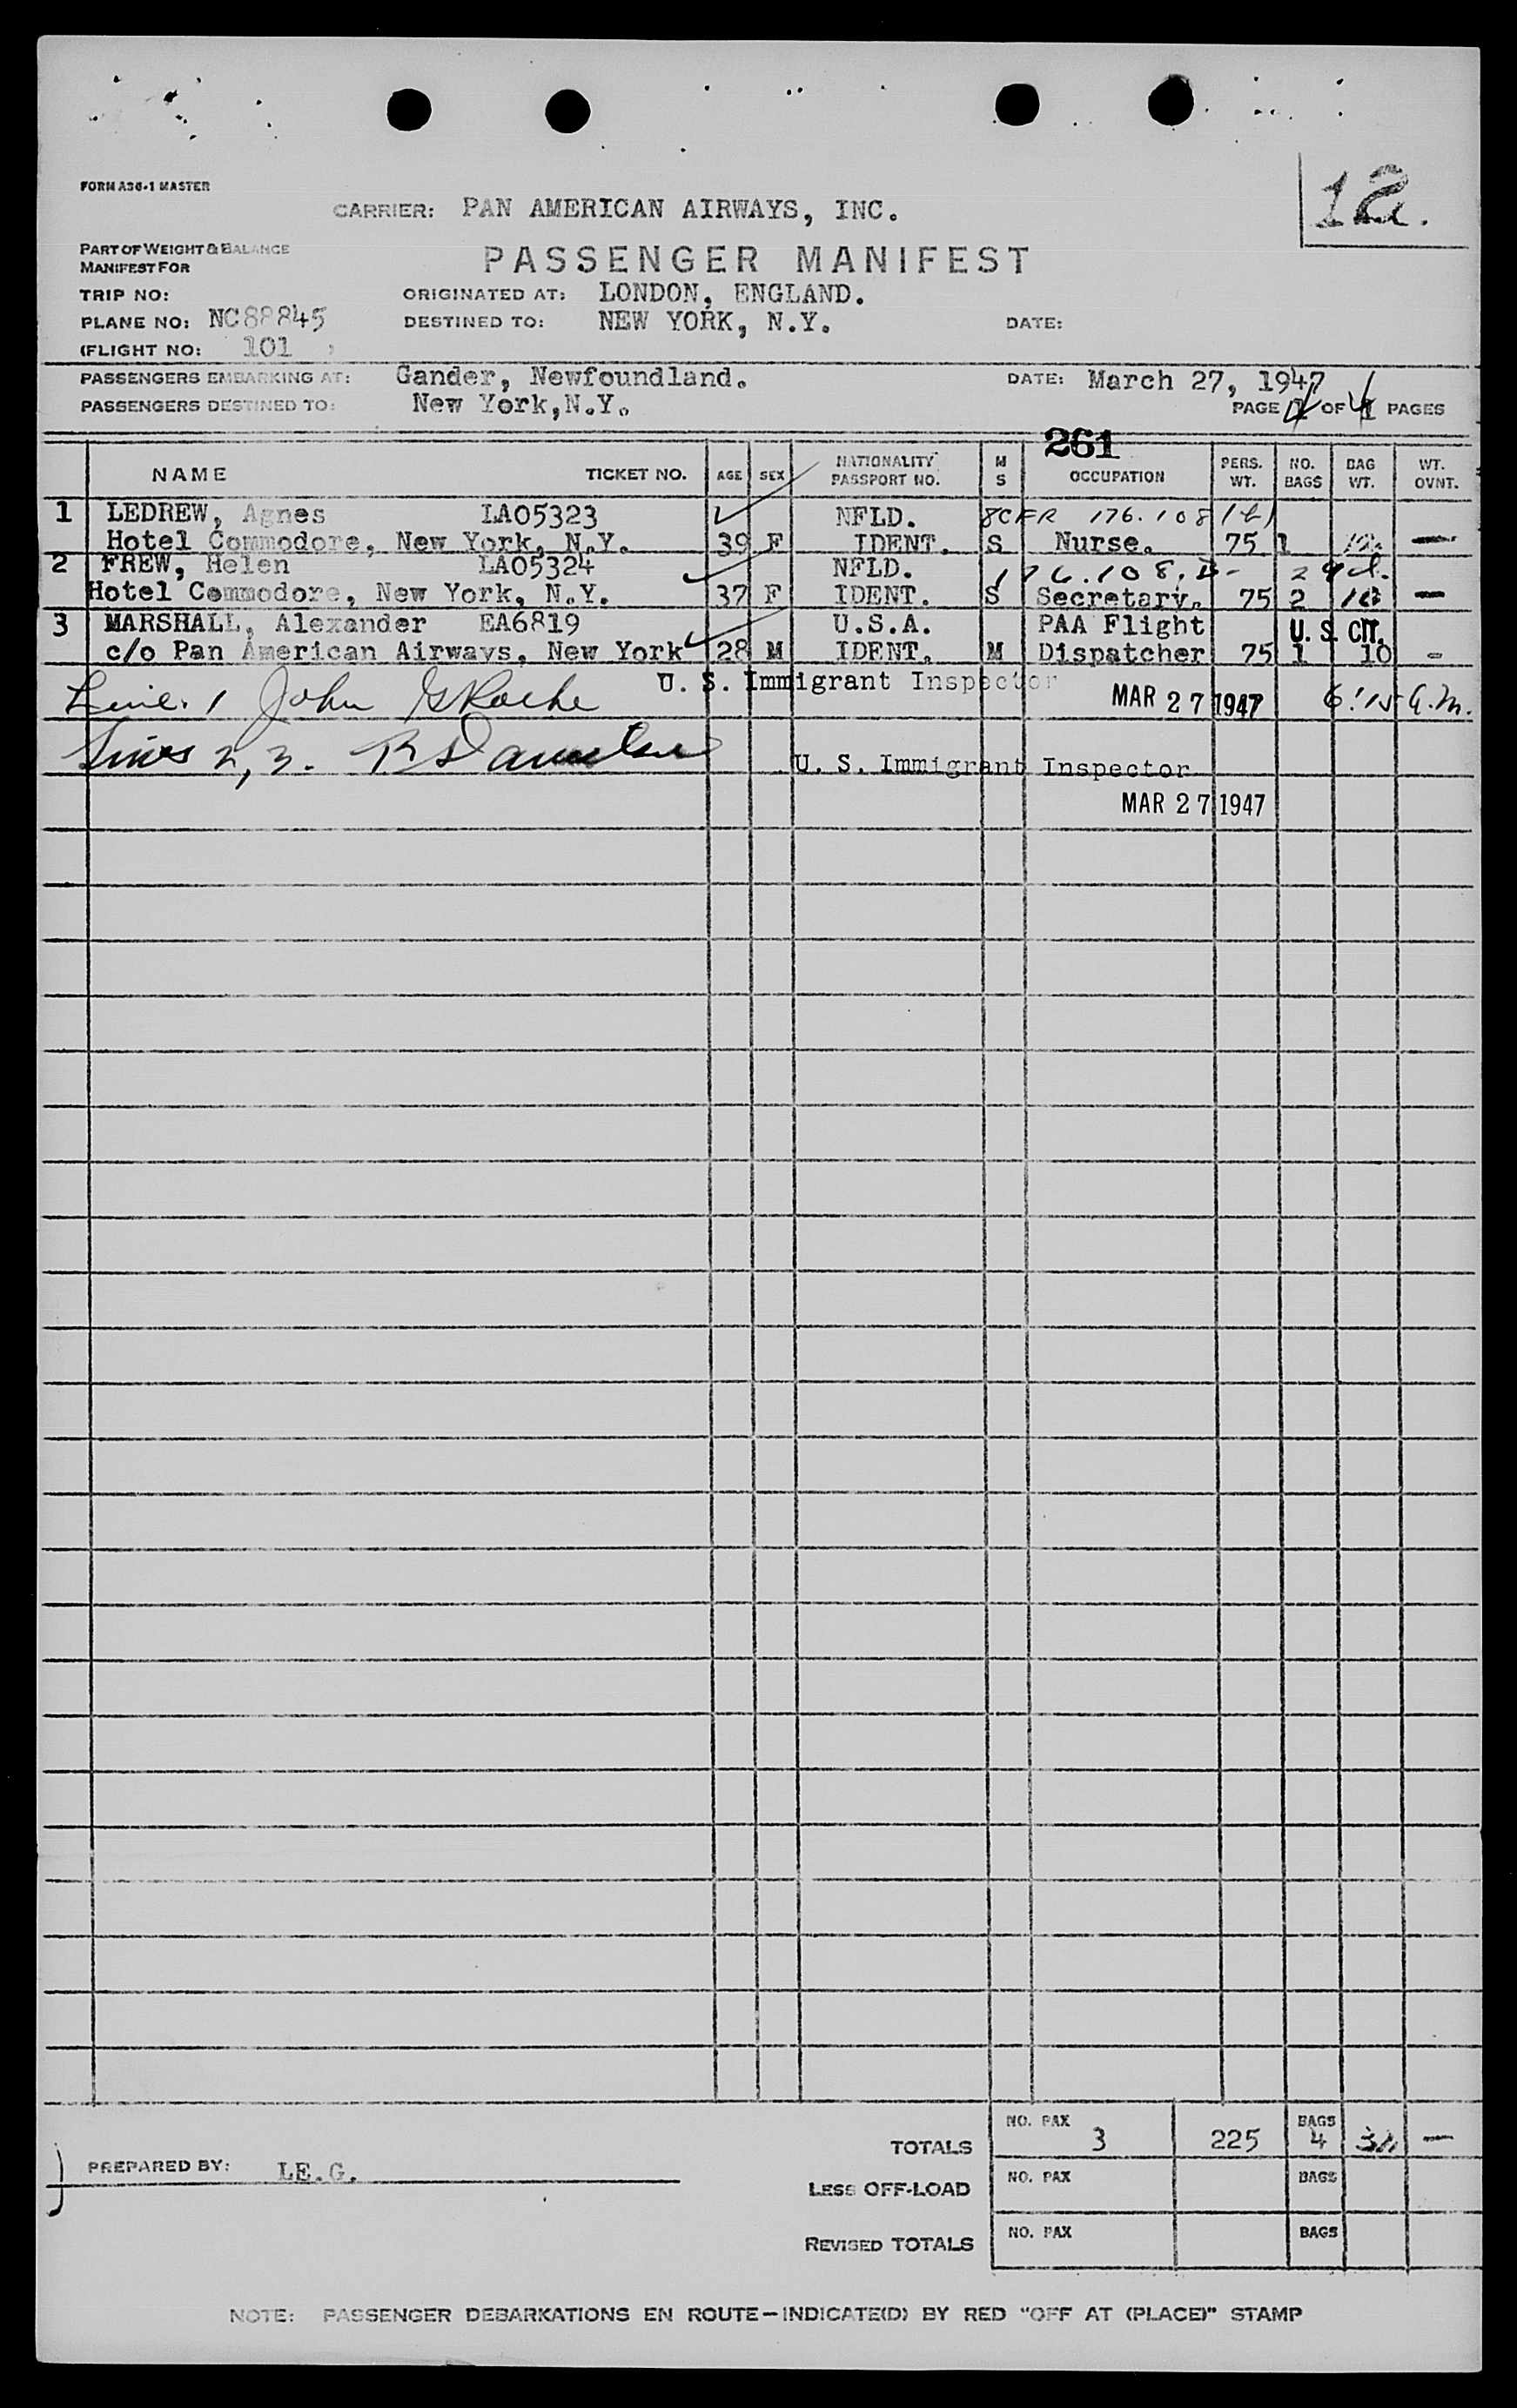 FORM A36-1 MASTER
12.
CARRIER: PAN AMERICAN AIRWAYS, INC.
PART OF WEIGHT & BALANCE
MANIFEST FOR
PASSENGER MANIFEST
TRIP NO:
ORIGINATED AT: LONDON, ENGLAND.
PLANE NO: NC88845
DESTINED TO: NEW YORK, N.Y.
DATE:
(FLIGHT NO: 101 )
PASSENGERS EMBARKING AT: Gander, Newfoundland.
DATE: March 27, 1947
PASSENGERS DESTINED TO: New York,N.Y.
PAGE 4 OF 4 PAGES
261
NAME TICKET NO. AGE SEX NATIONALITY PASSPORT NO. M S OCCUPATION PERS. WT. NO. BAGS BAG WT. WT. OVNT.
1 LEDREW, Agnes LA05323 NFLD. 8CFR 176.108(b)
Hotel Commodore, New York, N.Y. 39 F IDENT. S Nurse. 75 1 —
2 FREW, Helen LA05324 NFLD. 176.108.B-
Hotel Commodore, New York, N.Y. 37 F IDENT. S Secretary. 75 2 —
3 MARSHALL, Alexander EA6819 U.S.A. PAA Flight U.S. CIT.
c/o Pan American Airways, New York 28 M IDENT. M Dispatcher 75 1 10 -
Line 1 John G Roche U. S. Immigrant Inspector MAR 27 1947 6:15 a.m.
Lines 2, 3. U. S. Immigrant Inspector
MAR 27 1947
TOTALS NO. PAX 3 225 BAGS 4 —
PREPARED BY: LE.G.
LESS OFF-LOAD NO. PAX BAGS
REVISED TOTALS NO. PAX BAGS
NOTE: PASSENGER DEBARKATIONS EN ROUTE—INDICATE(D) BY RED "OFF AT (PLACE)" STAMP